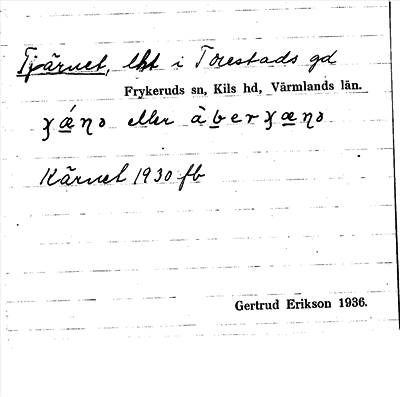 Tjärnet, lht i Torestads gd
Frykeruds sn, Kils hd, Värmlands län.
eller
Kärnet 1930 fb
Gertrud Erikson 1936.